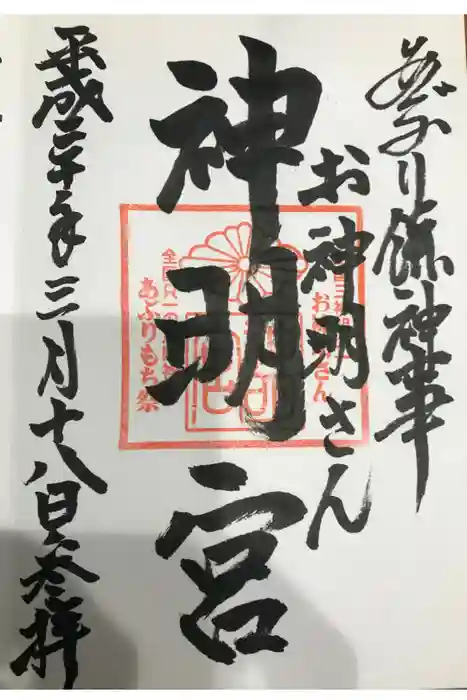 あぶり餅神事
お神明さん
神明宮
平成三十年三月十八日参拝
あぶりもち祭